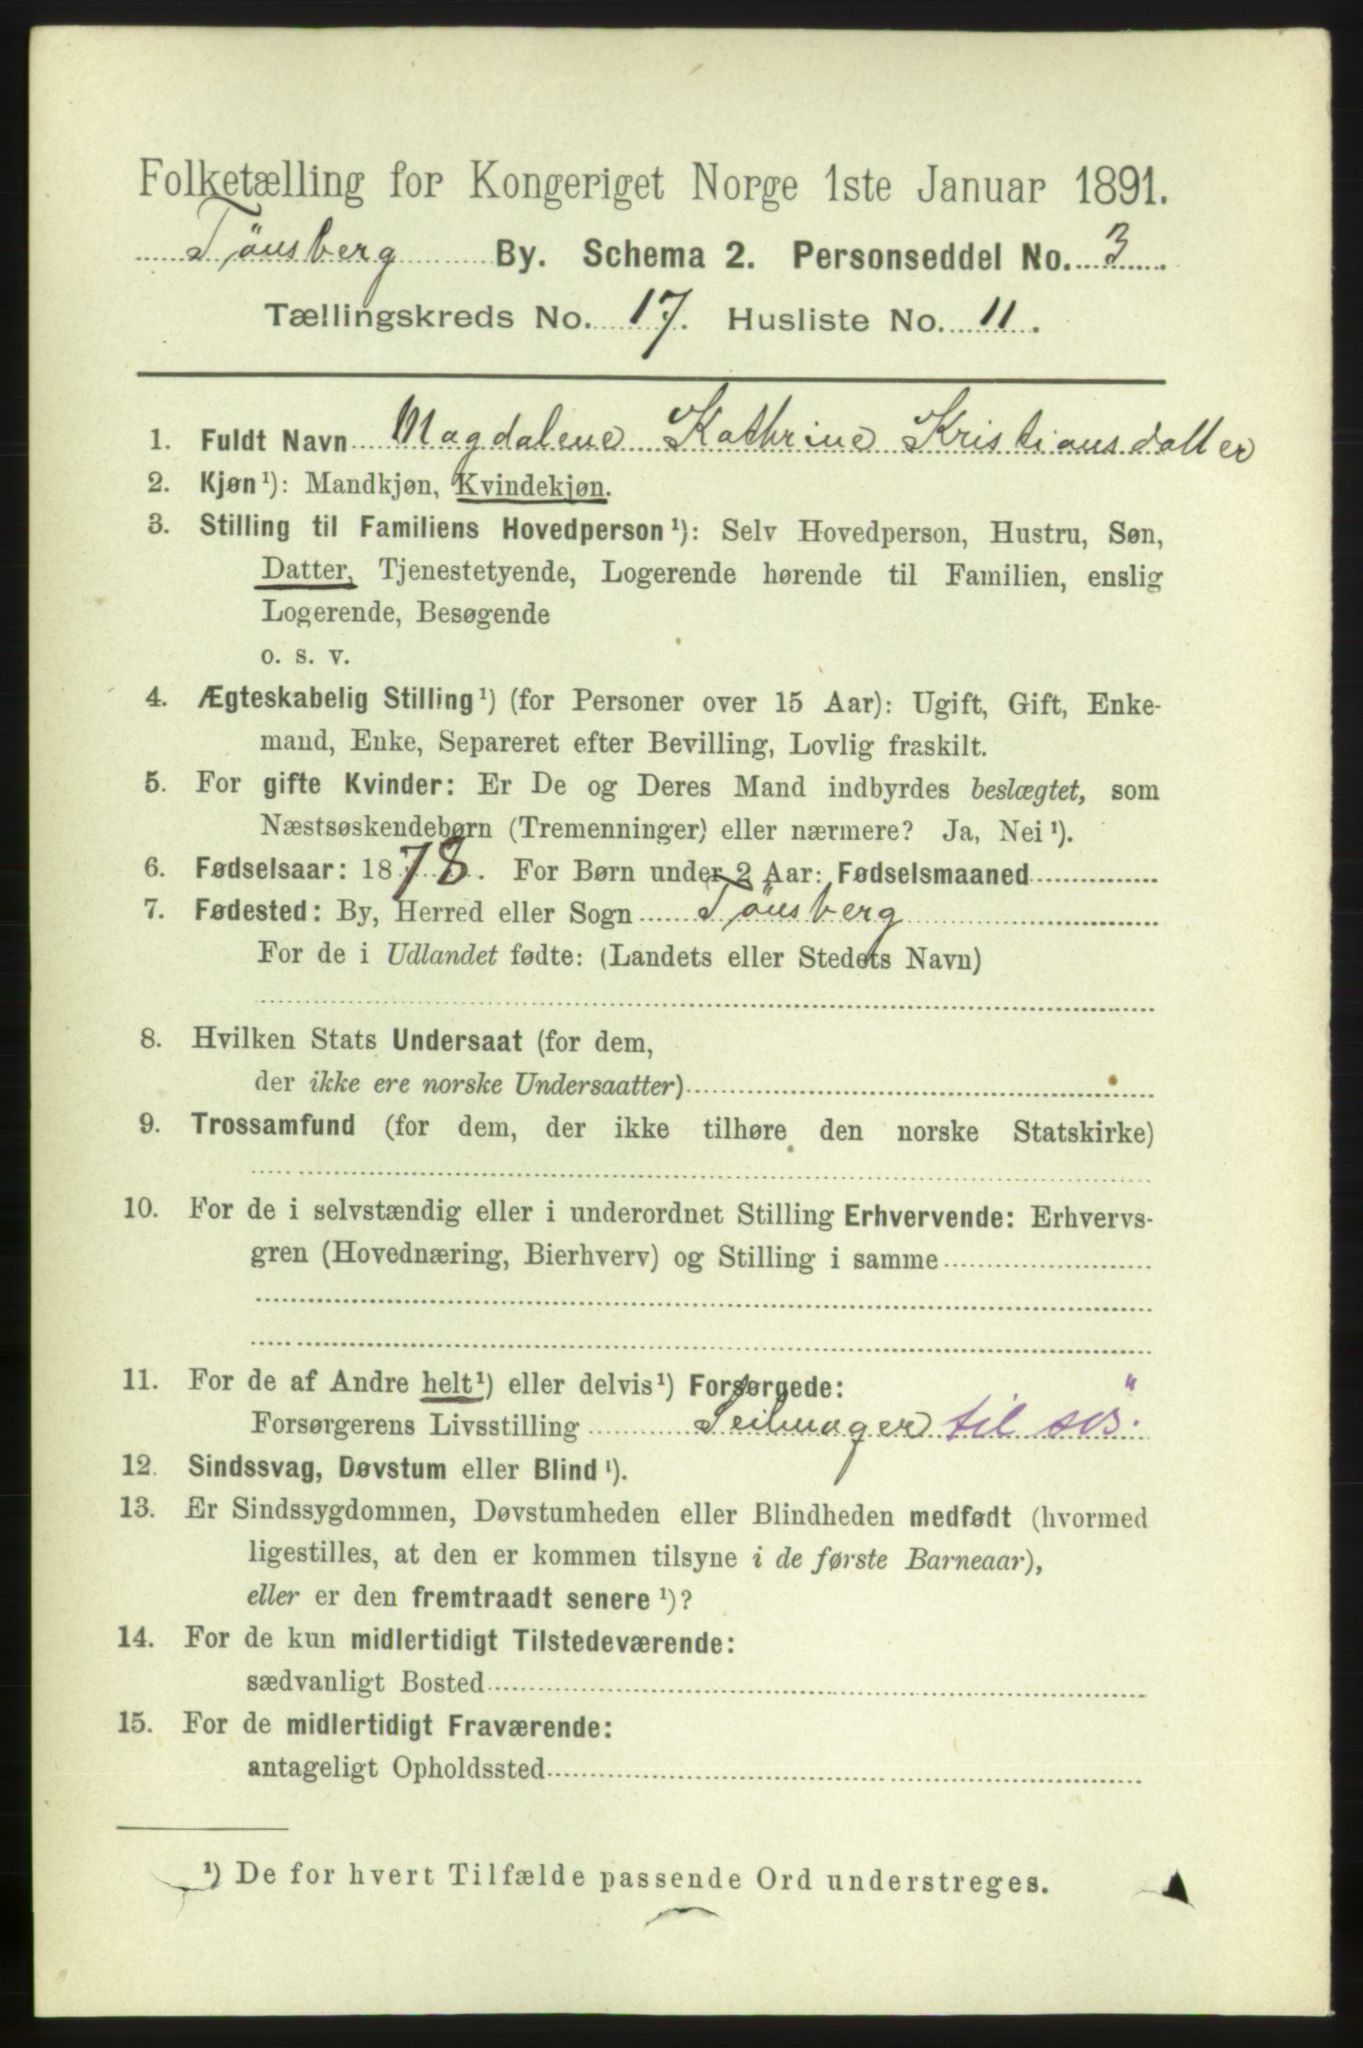 Folketælling for Kongeriget Norge 1ste Januar 1891.
Tönsberg By. Schema 2. Personseddel No. 3.
Tællingskreds No. 17. Husliste No. 11.
1. Fuldt Navn Magdalene Kathrine Kristiansdatter
2. Kjøn¹): Mandkjøn, Kvindekjøn.
3. Stilling til Familiens Hovedperson¹): Selv Hovedperson, Hustru, Søn,
Datter, Tjenestetyende, Logerende hørende til Familien, enslig
Logerende, Besøgende
o. s. v.
4. Ægteskabelig Stilling¹) (for Personer over 15 Aar): Ugift, Gift, Enke-
mand, Enke, Separeret efter Bevilling, Lovlig fraskilt.
5. For gifte Kvinder: Er De og Deres Mand indbyrdes beslægtet, som
Næstsøskendebørn (Tremenninger) eller nærmere? Ja, Nei¹).
6. Fødselsaar: 1878. For Børn under 2 Aar: Fødselsmaaned
7. Fødested: By, Herred eller Sogn Tönsberg
For de i Udlandet fødte: (Landets eller Stedets Navn)
8. Hvilken Stats Undersaat (for dem,
der ikke ere norske Undersaatter)
9. Trossamfund (for dem, der ikke tilhøre den norske Statskirke)
10. For de i selvstændig eller i underordnet Stilling Erhvervende: Erhvervs-
gren (Hovednæring, Bierhverv) og Stilling i samme
11. For de af Andre helt¹) eller delvis¹) Forsørgede:
Forsørgerens Livsstilling Seilmager til sös.
12. Sindssvag, Døvstum eller Blind¹).
13. Er Sindssygdommen, Døvstumheden eller Blindheden medfødt (hvormed
ligestilles, at den er kommen tilsyne i de første Barneaar),
eller er den fremtraadt senere¹)?
14. For de kun midlertidigt Tilstedeværende:
sædvanligt Bosted
15. For de midlertidigt Fraværende:
antageligt Opholdssted
¹) De for hvert Tilfælde passende Ord understreges.